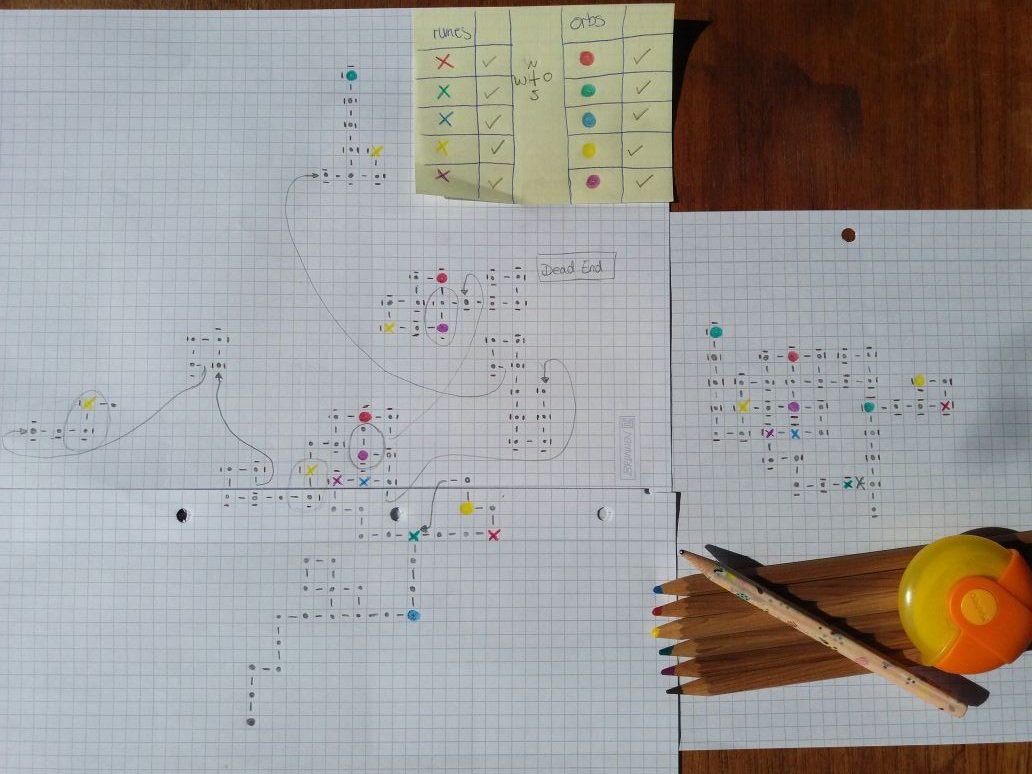 runes
orbs
N
W+O
S
Dead End